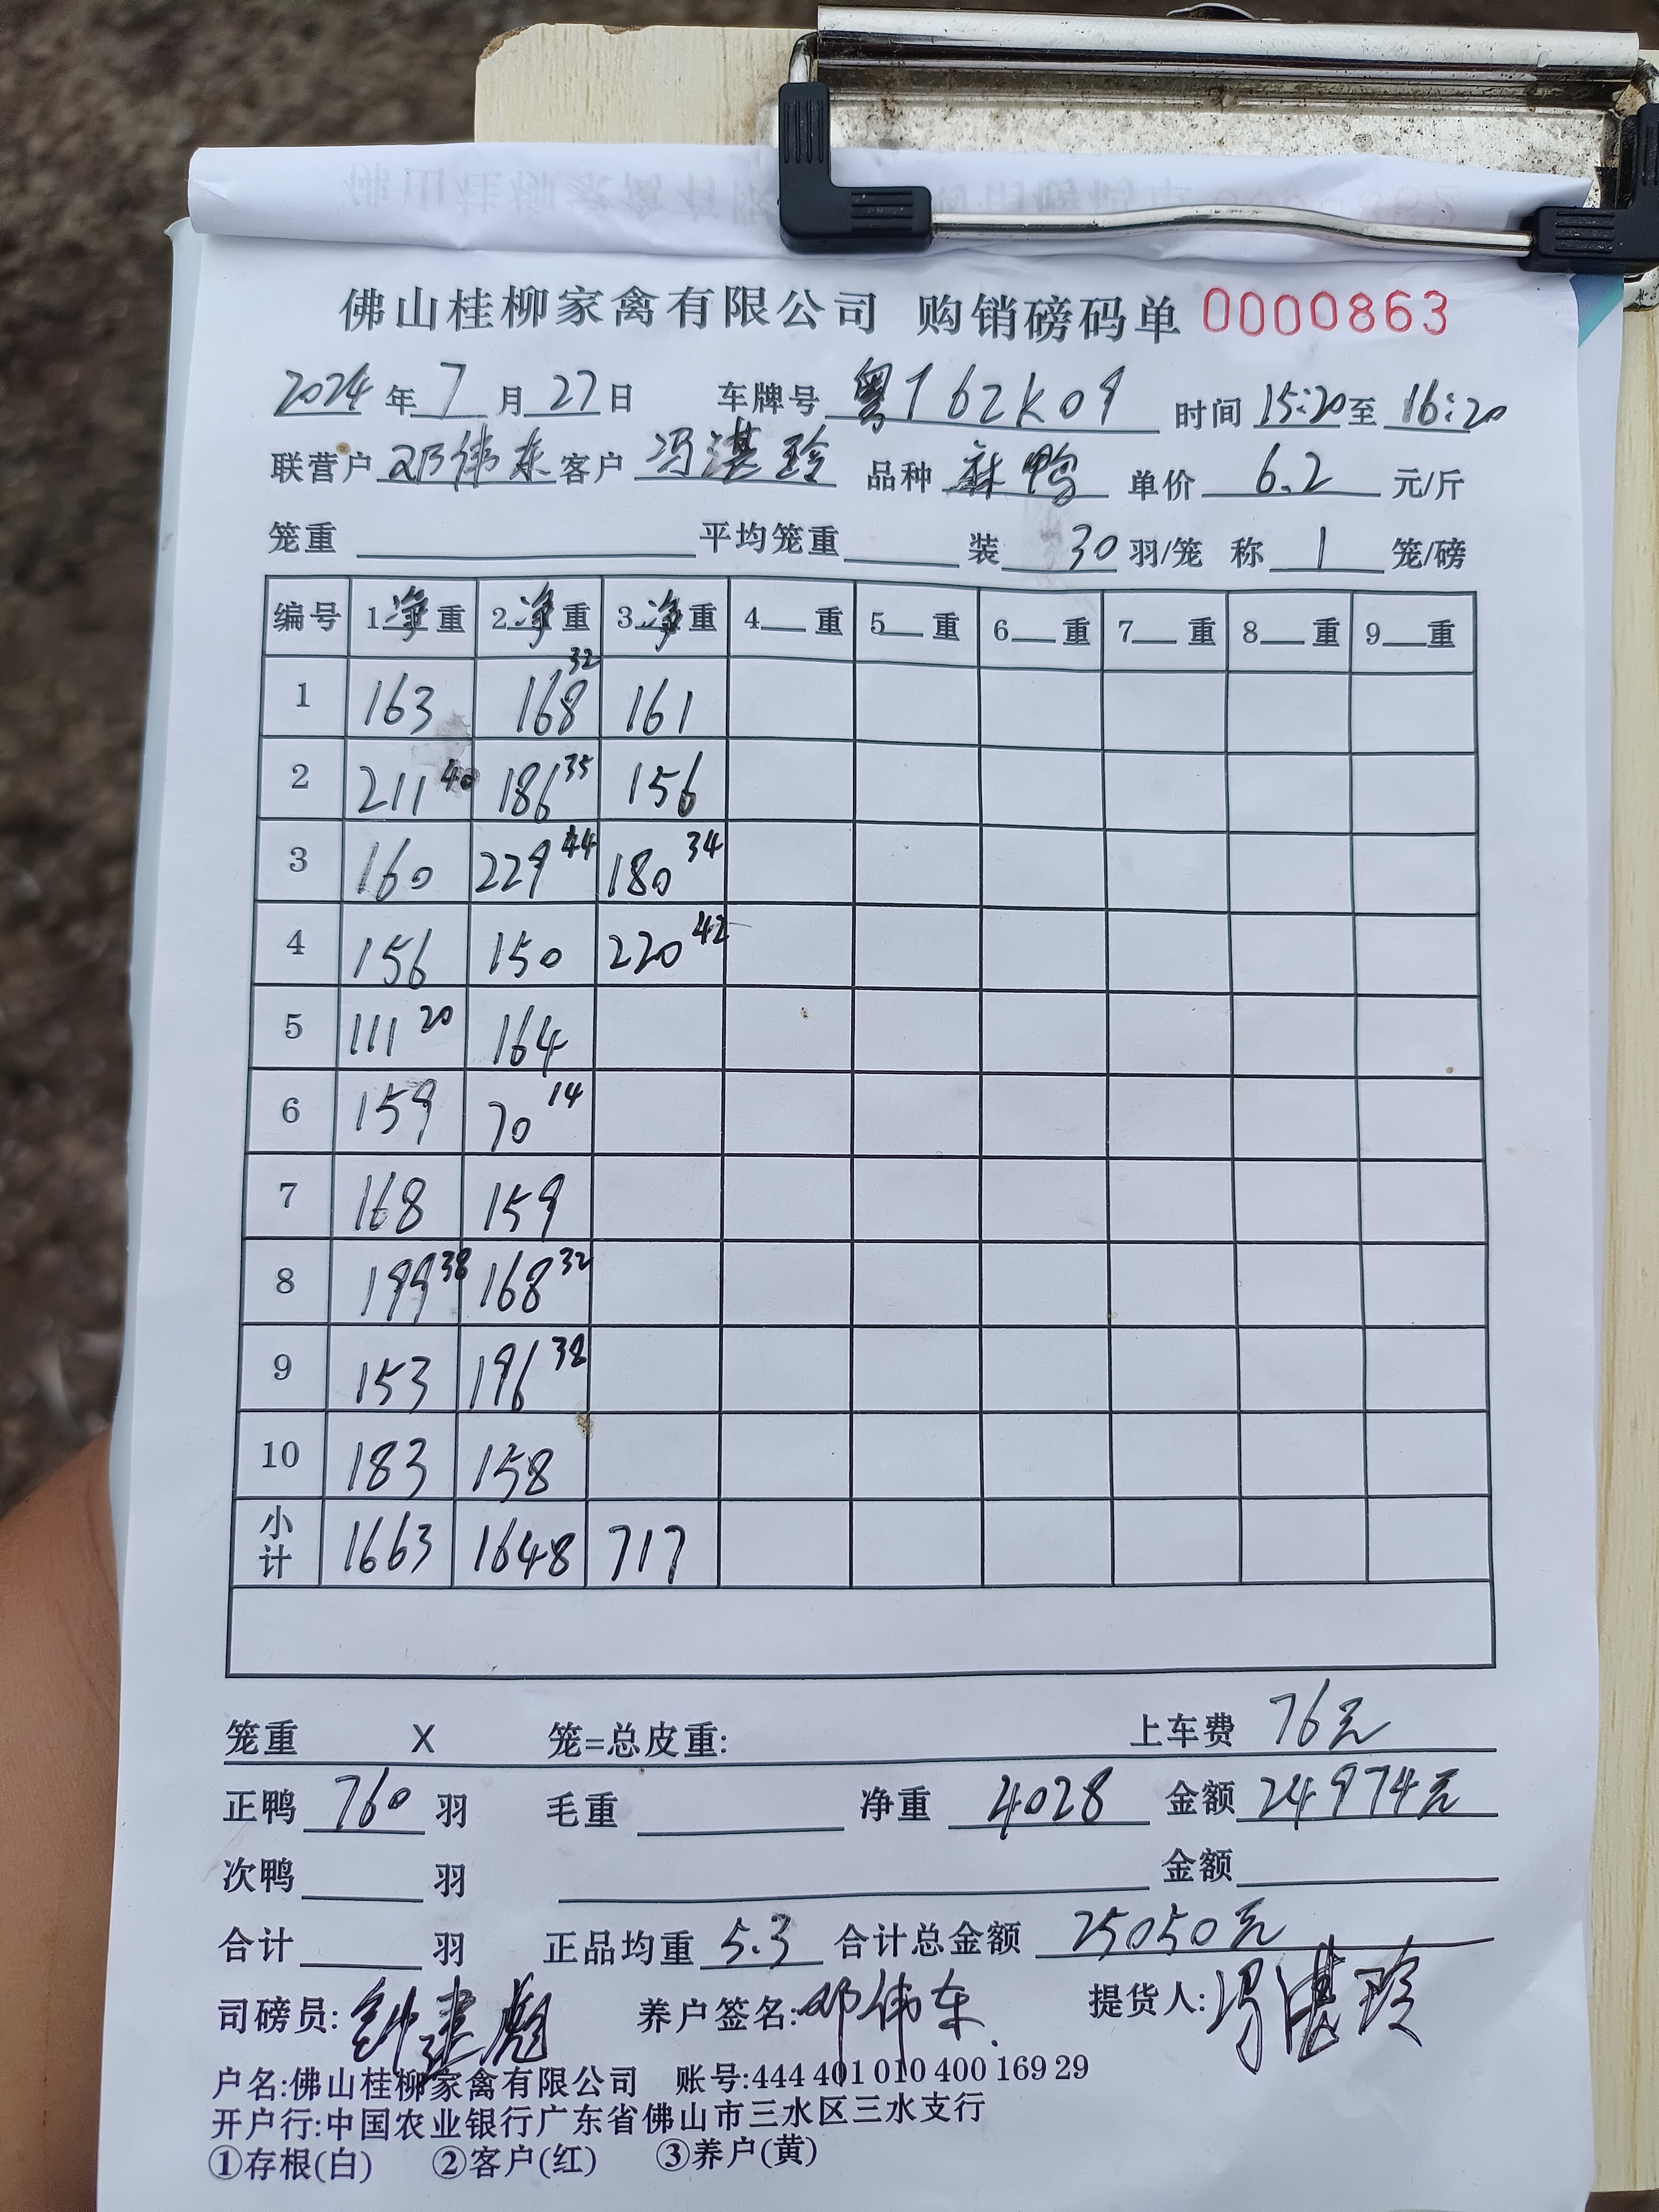 佛山桂柳家禽有限公司 购销磅码单 0000863
2024年7月27日 车牌号 粤T62K09 时间 15:20至16:20
联营户 邓伟东 客户 冯湛玲 品种 麻鸭 单价 6.2 元/斤
笼重 平均笼重 装 30 羽/笼 称 1 笼/磅
编号 1净重 2净重 3净重 4__重 5__重 6__重 7__重 8__重 9__重
1 163 168 32 161
2 211 40 186 35 156
3 160 229 44 180 34
4 156 150 220 42
5 111 20 164
6 159 70 14
7 168 159
8 199 38 168 32
9 153 196 38
10 183 158
小计 1663 1648 717
笼重 X 笼=总皮重: 上车费 76元
正鸭 760 羽 毛重 净重 4028 金额 24974元
次鸭 羽 金额
合计 羽 正品均重 5.3 合计总金额 25050元
司磅员:钟建彪 养户签名:邓伟东 提货人:冯湛玲
户名:佛山桂柳家禽有限公司 账号:444 401 010 400 169 29
开户行:中国农业银行广东省佛山市三水区三水支行
①存根(白) ②客户(红) ③养户(黄)